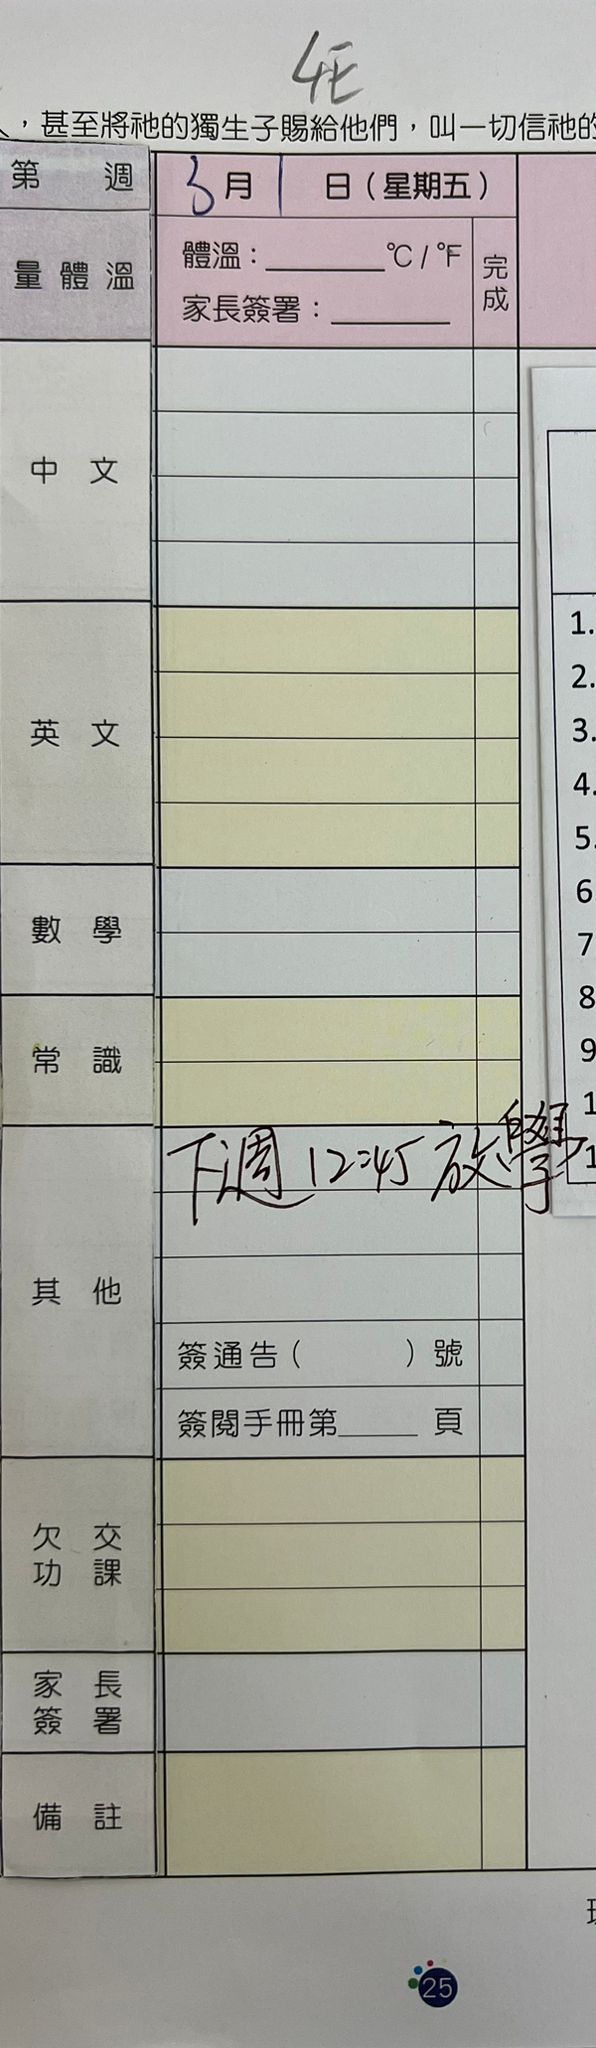 4E
，甚至將祂的獨生子賜給他們，叫一切信祂的
第 週
3月1日(星期五)
量體溫
體溫：______℃/℉
家長簽署：______
完成
中文
英文
1.
2.
3.
4.
5.
6
7
8
9
1
1
數學
常識
其他
下週12:45放學
簽通告( )號
簽閱手冊第____頁
欠交功課
家長簽署
備註
25